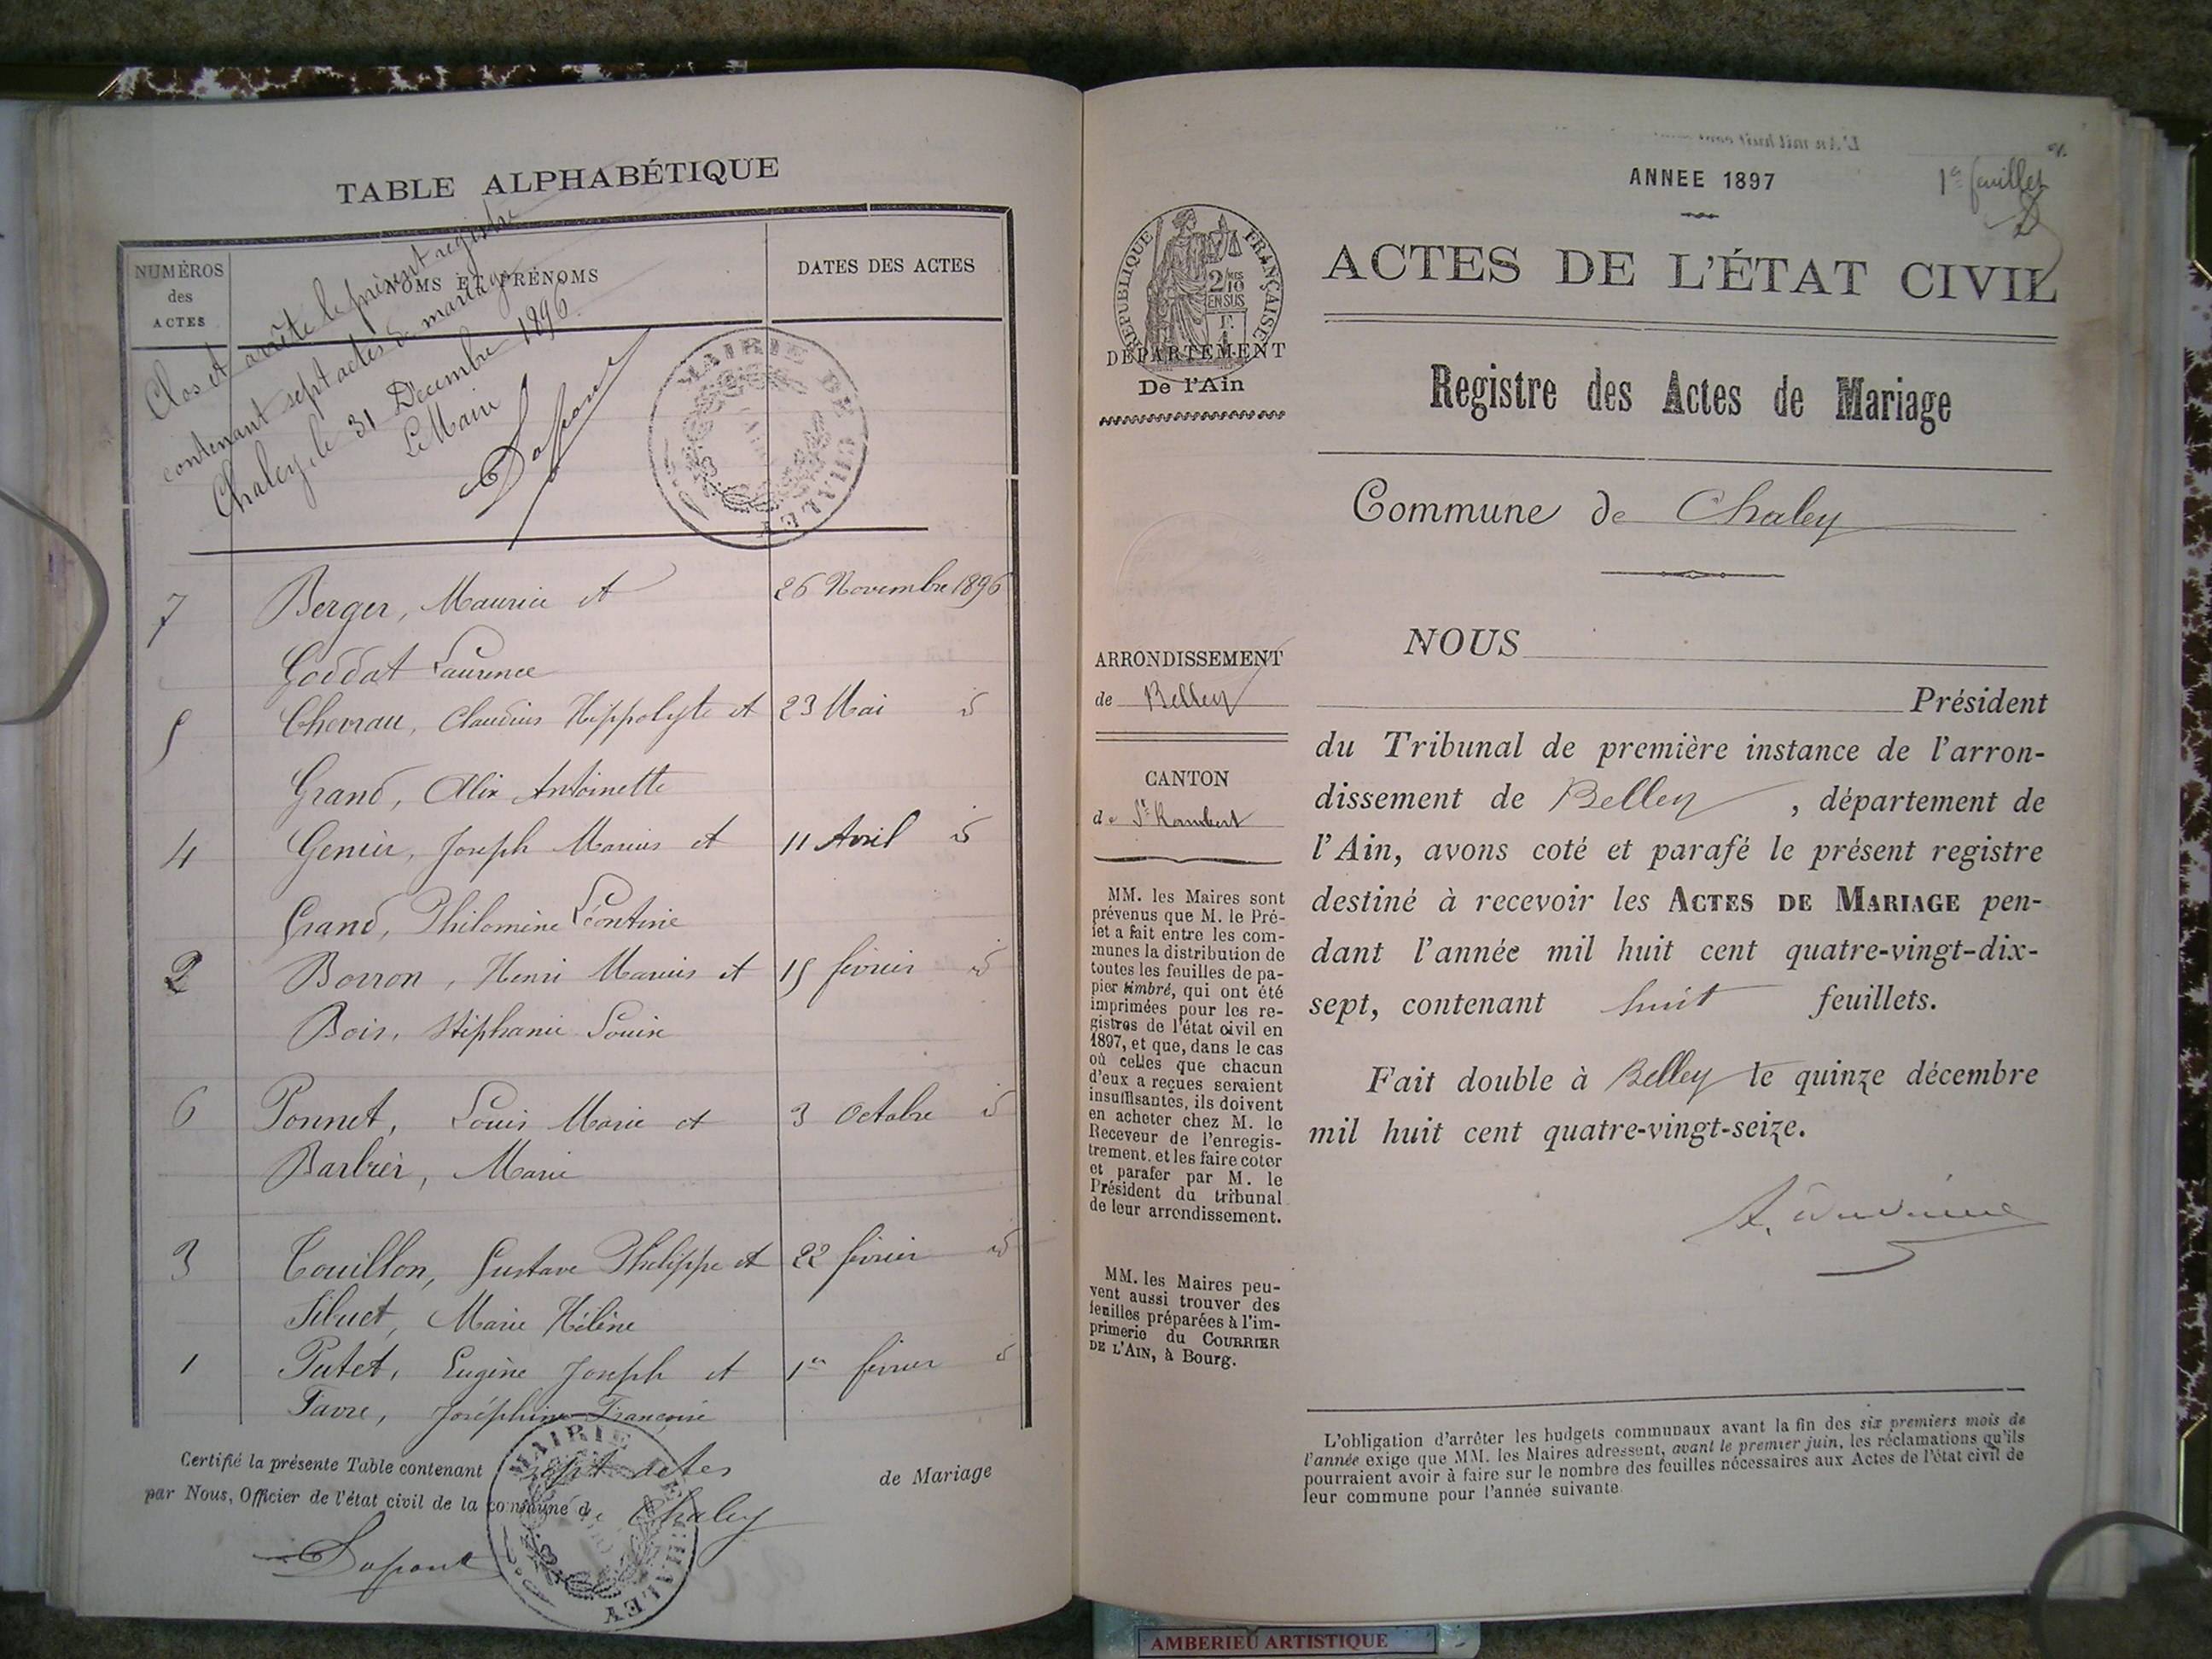 TABLE ALPHABÉTIQUE
NUMÉROS
des
ACTES
NOMS ET PRÉNOMS
DATES DES ACTES
Clos et arrêté le présent registre
contenant sept actes de mariage
Chaley, le 31 Décembre 1896
Le Maire
MAIRIE DE CHALEY
7 Berger, Maurice et 26 Novembre 1896
Goddat Laurence
5 Chevrau, Claudius Hippolyte et 23 Mai id
Grand, Alix Antoinette
4 Genier, Joseph Marius et 11 Avril id
Grand, Philomène Léontine
2 Borron, Henri Marius et 15 février id
Bois, Stéphanie Louise
6 Ponnet, Louis Marie et 3 Octobre id
Barbier, Marie
3 Touillon, Gustave Philippe et 22 février id
Sibuet, Marie Hélène
1 Putet, Eugène Joseph et 1er février id
Favre, Joséphine Françoise
Certifié la présente Table contenant sept actes de Mariage
par Nous, Officier de l'état civil de la commune de Chaley
MAIRIE DE CHALEY
1er feuillet
ANNEE 1897
ACTES DE L'ÉTAT CIVIL
RÉPUBLIQUE FRANÇAISE
2/10
EN SUS
DÉPARTEMENT
De l'Ain
Registre des Actes de Mariage
Commune de Chaley
ARRONDISSEMENT
de Belley
CANTON
de St Rambert
MM. les Maires sont
prévenus que M. le Pré-
fet a fait entre les com-
munes la distribution de
toutes les feuilles de pa-
pier timbré, qui ont été
imprimées pour les re-
gistres de l'état civil en
1897, et que, dans le cas
où celles que chacun
d'eux a reçues seraient
insuffisantes, ils doivent
en acheter chez M. le
Receveur de l'enregis-
trement, et les faire coter
et parafer par M. le
Président du tribunal
de leur arrondissement.
MM. les Maires peu-
vent aussi trouver des
feuilles préparées à l'im-
primerie du COURRIER
DE L'AIN, à Bourg.
NOUS
Président
du Tribunal de première instance de l'arron-
dissement de Belley, département de
l'Ain, avons coté et parafé le présent registre
destiné à recevoir les ACTES DE MARIAGE pen-
dant l'année mil huit cent quatre-vingt-dix-
sept, contenant huit feuillets.
Fait double à Belley le quinze décembre
mil huit cent quatre-vingt-seize.
L'obligation d'arrêter les budgets communaux avant la fin des six premiers mois de
l'année exige que MM. les Maires adressent, avant le premier juin, les réclamations qu'ils
pourraient avoir à faire sur le nombre des feuilles nécessaires aux Actes de l'état civil de
leur commune pour l'année suivante.
AMBERIEU ARTISTIQUE